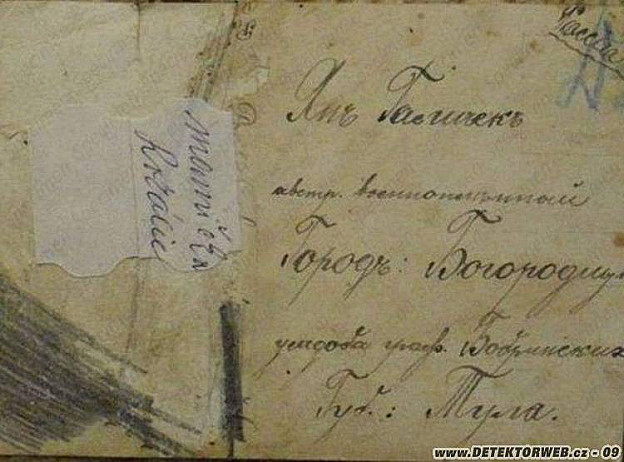 mamička
Rozálie
Янъ
австр. военнопленный
Городъ: Богородиц
усадьба граф. Бобринских
Губ.: Тула.
www.DETEKTORWEB.cz - 09